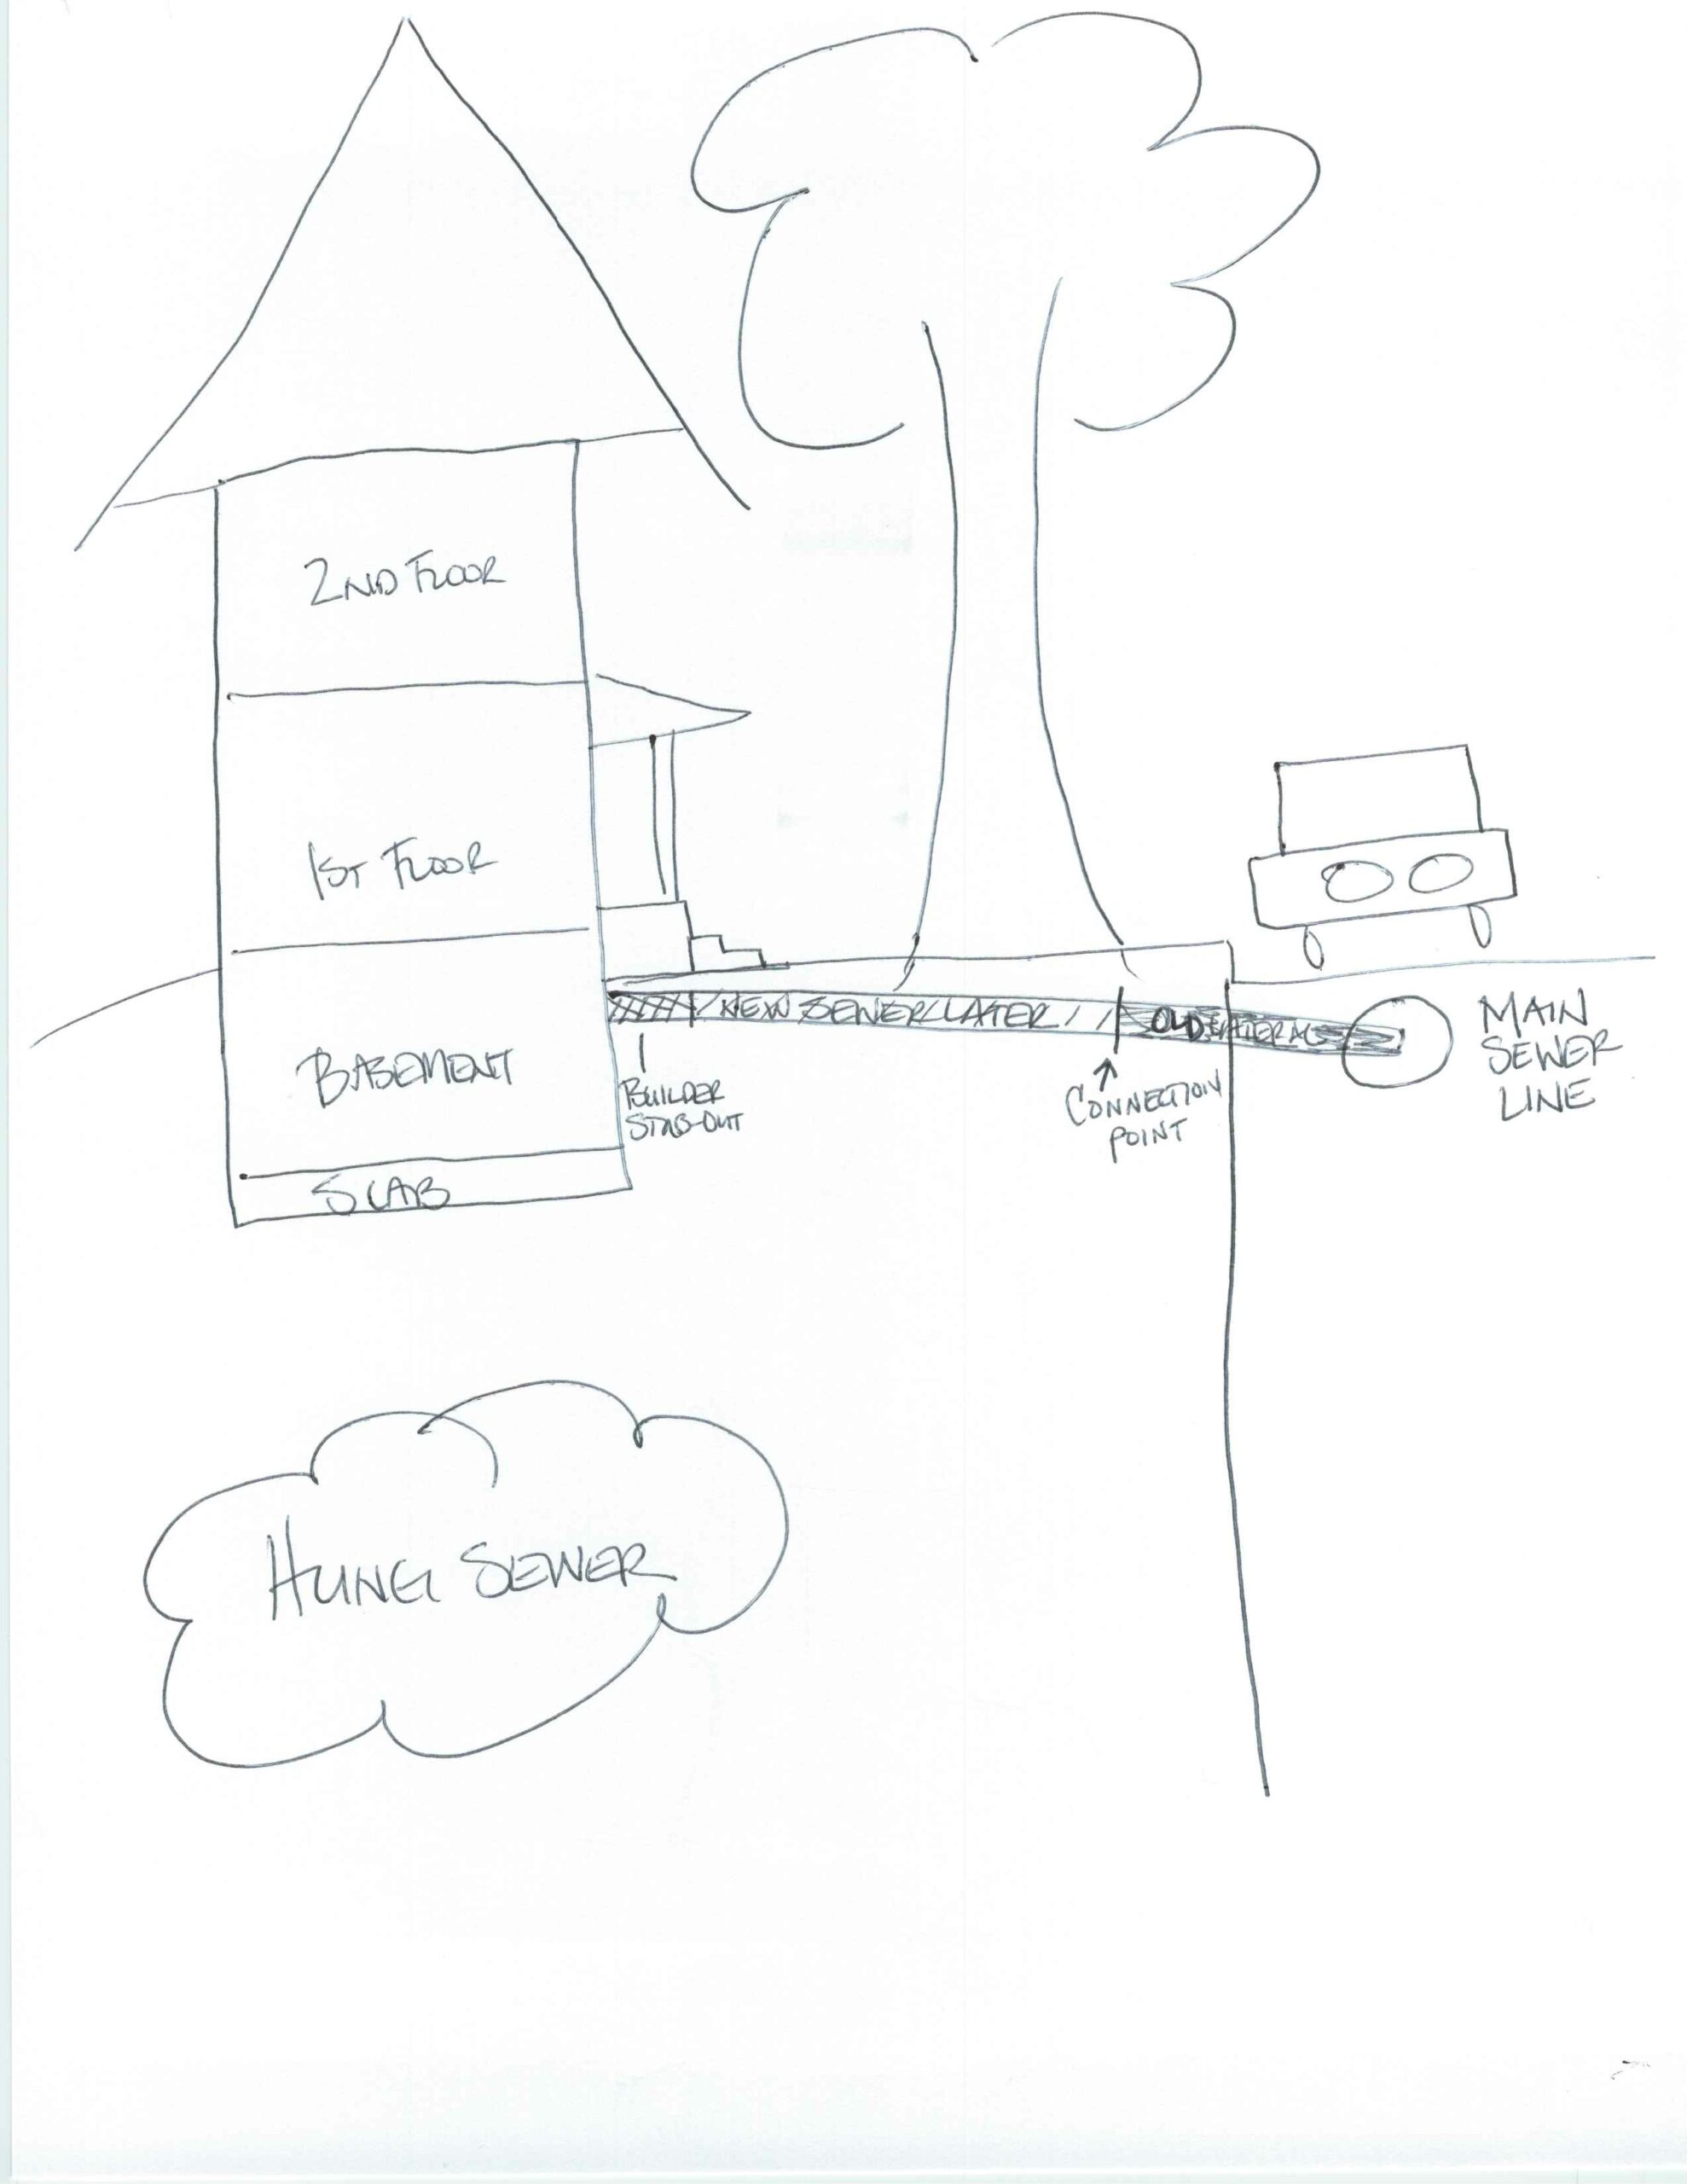 2ND FLOOR
1ST FLOOR
BASEMENT
SLAB
NEW SEWER LATER
OLD LATERAL
BUILDER
STAB-OUT
CONNECTION
POINT
MAIN
SEWER
LINE
HUNG SEWER